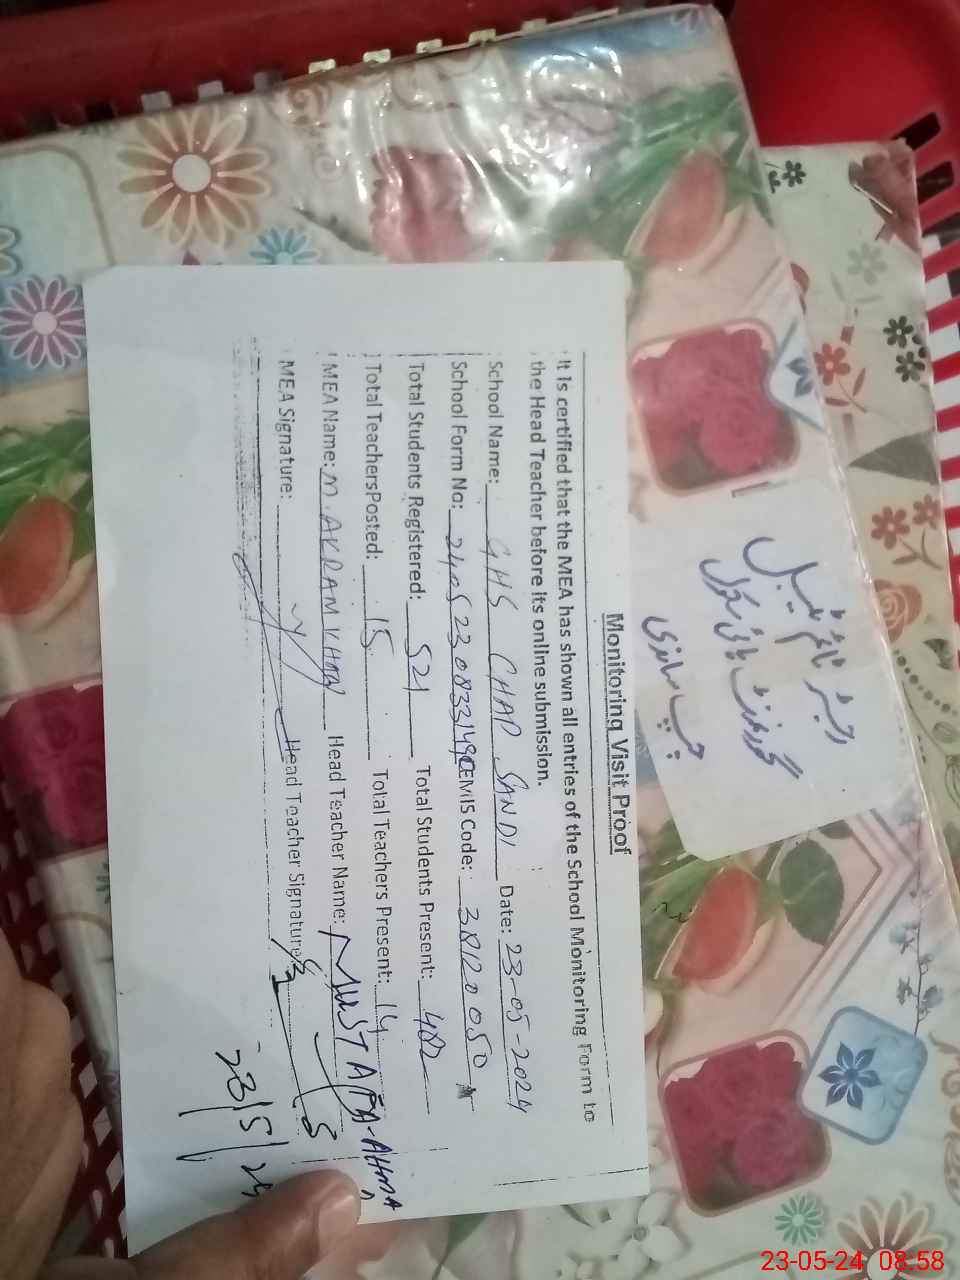 Monitoring Visit Proof
It Is certified that the MEA has shown all entries of the School Monitoring Form to
the Head Teacher before its online submission.
School Name: GHS CHAP SANDI Date: 23-05-2024
School Form No: EMIS Code: 38120050
Total Students Registered: 521 Total Students Present: 482
Total TeachersPosted: 15 Total Teachers Present: 14
MEA Name: M. AKRAM Head Teacher Name: MUSTAFA-AHMA
MEA Signature: Head Teacher Signature:
23/5/24
رجسٹر ٹائم ٹیبل
گورنمنٹ ہائی سکول
چپ سانڈی
23-05-24 08:58